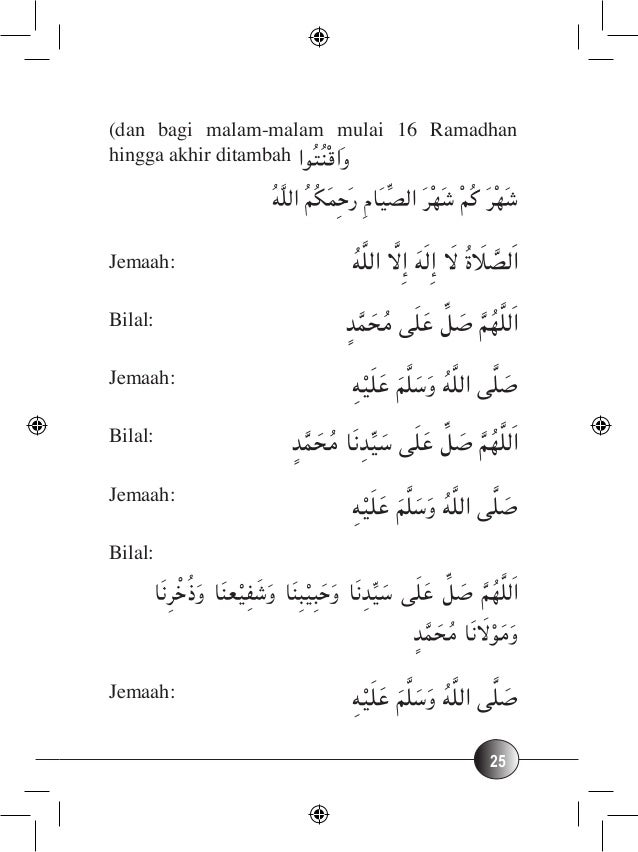 (dan bagi malam-malam mulai 16 Ramadhan
hingga akhir ditambah وَاَقْنُتُوا
شَهْرَ كُمْ شَهْرَ الصِّيَامِ رَحِمَكُمُ اللَّهُ
Jemaah: اَلصَّلَاةُ لَا إِلَهَ إِلَّا اللَّهُ
Bilal: اَللَّهُمَّ صَلِّ عَلَى مُحَمَّدٍ
Jemaah: صَلَّى اللَّهُ وَسَلَّمَ عَلَيْهِ
Bilal: اَللَّهُمَّ صَلِّ عَلَى سَيِّدِنَا مُحَمَّدٍ
Jemaah: صَلَّى اللَّهُ وَسَلَّمَ عَلَيْهِ
Bilal:
اَللَّهُمَّ صَلِّ عَلَى سَيِّدِنَا وَحَبِيْبِنَا وَشَفِيْعِنَا وَذُخْرِنَا
وَمَوْلَانَا مُحَمَّدٍ
Jemaah: صَلَّى اللَّهُ وَسَلَّمَ عَلَيْهِ
25